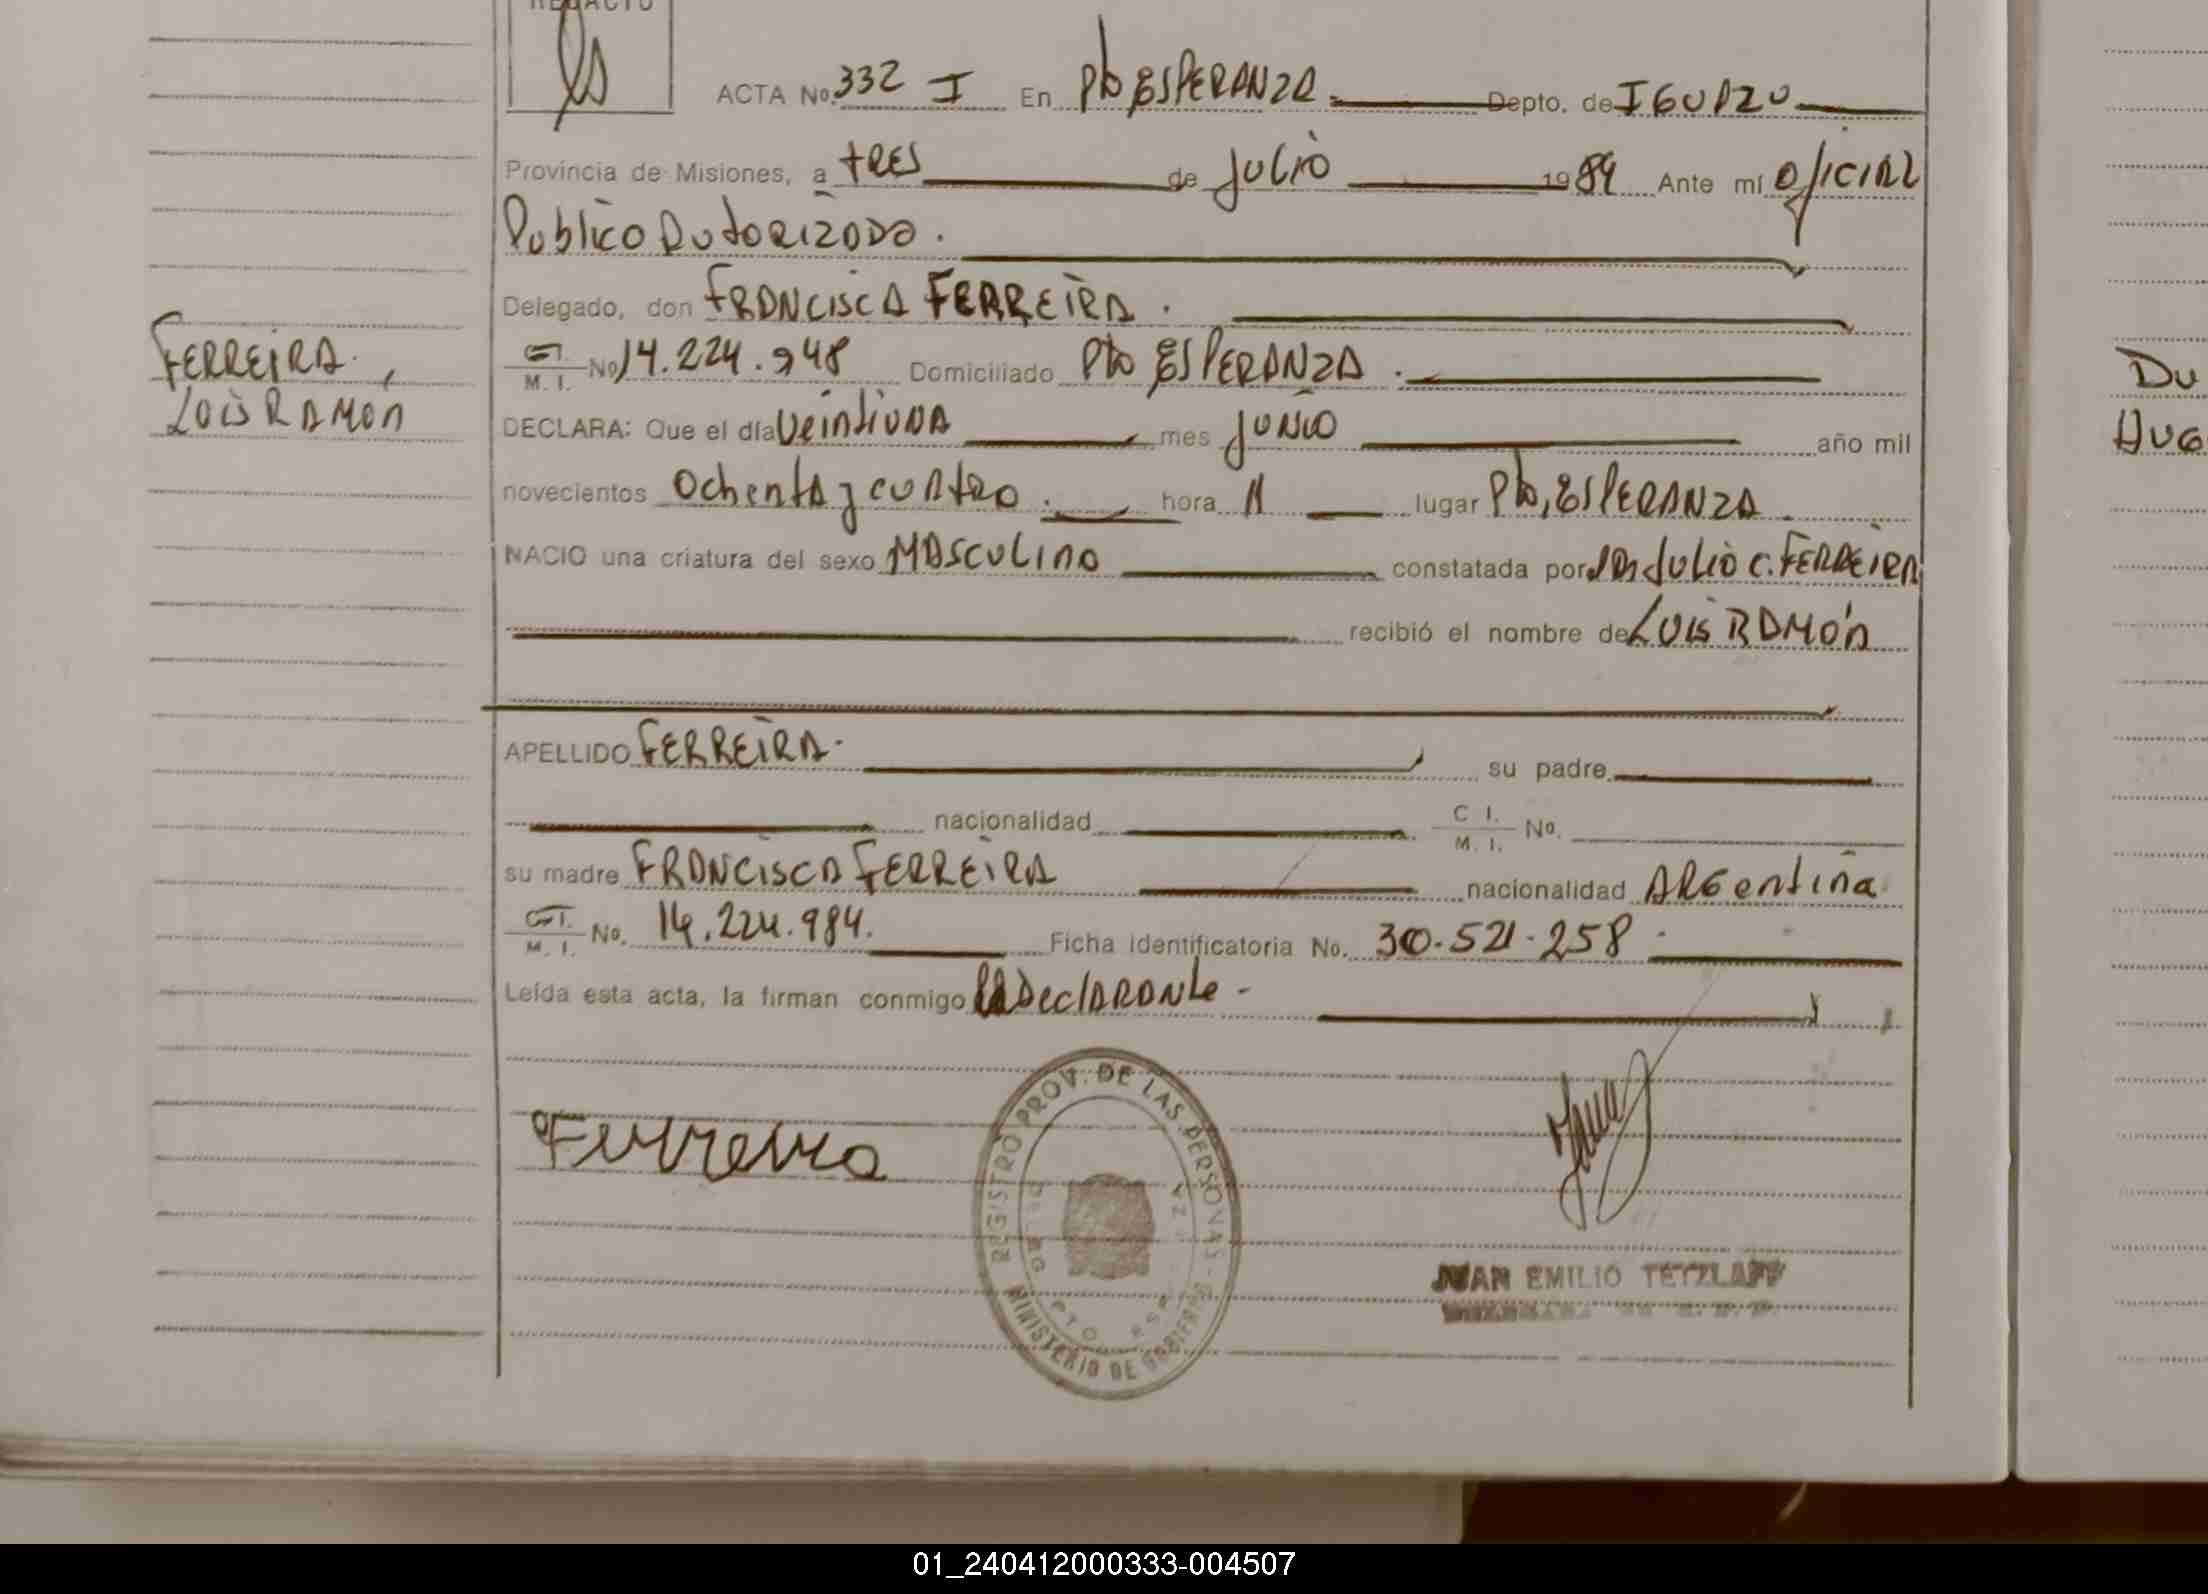 REDACTO
ACTA No. 332 I En Pto ESPERANZA. Depto. de IGUAZU
Provincia de Misiones, a tRES de Julio 1984 Ante mí Oficial
Publico Autorizado.
Delegado, don FRANCISCA FERREIRA.
C.I. M. I. No 14.224.948 Domiciliado Pto ESPERANZA.
FERREIRA,
LUIS RAMÓN
DECLARA: Que el día Veintiuna mes JUNIO año mil
novecientos Ochenta y cuatro. hora 11 lugar Pto, ESPERANZA.
NACIO una criatura del sexo MASCULINO constatada por JULIO C. FERREIRA
recibió el nombre de LUIS RAMÓN
APELLIDO FERREIRA. su padre
nacionalidad C I. M. I. No.
su madre FRANCISCA FERREIRA nacionalidad ARGentina
C.I. M. I. No. 14.224.984. Ficha identificatoria No. 30.521.258.
Leída esta acta, la firman conmigo la DeclARANte -
Ferreira
REGISTRO PROV. DE LAS PERSONAS - MINISTERIO DE GOBIERNO
JUAN EMILIO TETZLAFF
Du
HUG
01_240412000333-004507